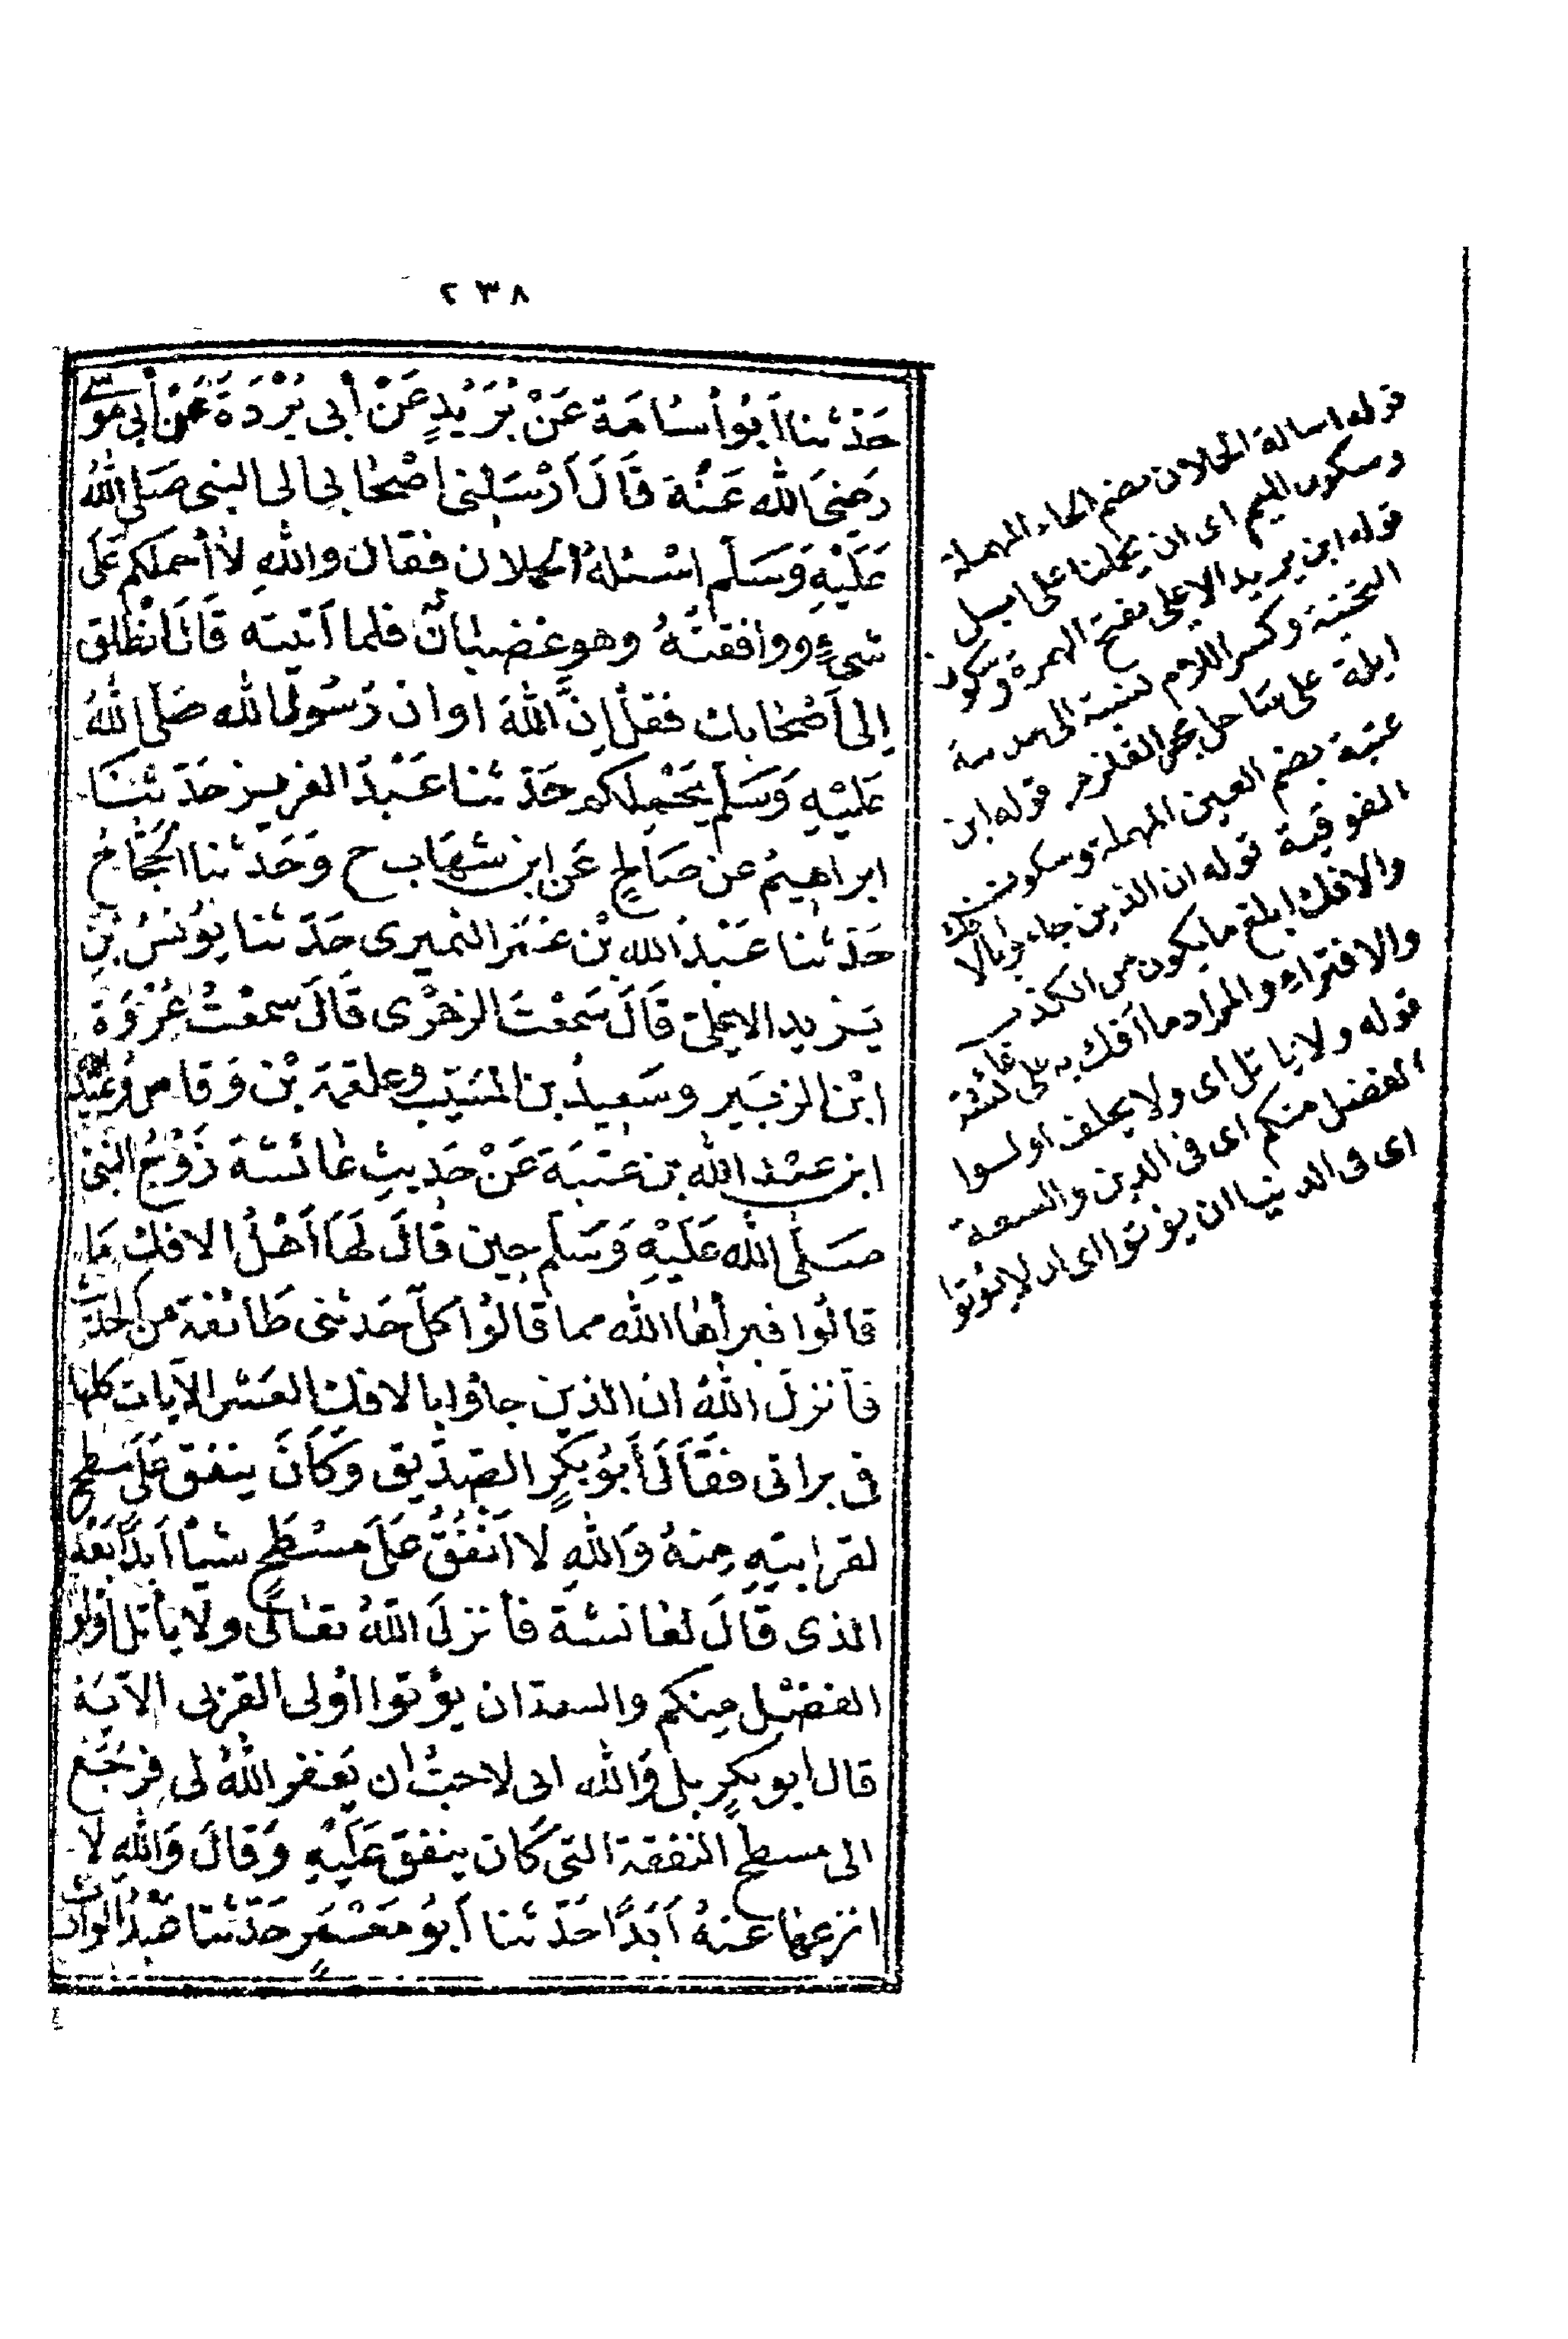 ٢٣٨
حَدَّثنا أبُو أسَامَة عَنْ بُرَيْدٍ عَنْ أبى بُرْدَةَ عَنْ أبى موسى
رَضىَ الله عَنْهُ قَالَ أَرْسَلنِى اصْحَابى الى النبى صَلى اللهُ
عَلَيْهِ وَسَلم اسْئلهُ الحملان فقال واللهِ لا أحملكم عَلَى
شىءٍ ووافقتهُ وهو غضبانٌ فلما أتيته قَالَ انْطلق
إلى أَصْحَابك فقلْ إنَّ اللهَ اوان رَسُولَ الله صَلى اللهُ
عَليْهِ وَسَلم يَحْمِلكم حَدّثنا عَبْدُ العزيز حَدّثنَا
ابراهيمُ عن صَالحٍ عَن ابن شهَاب ح وَحَدّثنا الحَجّاجُ
حَدّثنا عَبْدُ الله بْن عُمَرَ النميرى حَدّثنا يُونسُ بْن
يَزيد الايلى قَالَ سَمعْتُ الزهْرى قَالَ سمعْتُ عُرْوَةَ
ابْن الزبَير وسَعيدَ بن المسَيّب وعلقمة بْن وَقاص وعُبَيْد
ابن عبْد الله بن عتبَة عَنْ حَديثِ عَائشَة زَوْج النّبى
صَلى الله عَلَيْهِ وَسَلم حين قَالَ لهَا أهْلُ الافك مَا
قالُوا فبرأهَا الله مما قَالُوا كلّ حَدثنى طَائفة من الحديث
فأنزلَ اللهُ ان الذين جاؤا بالافك العَشر الآيات كلها
فى براتى فقَالَ أبُو بَكرٍ الصّدّيق وَكَانَ ينفق عَلَى مسطح
لقرابتِهِ مِنهُ وَاللهِ لا أنْفقُ عَلَى مسْطَحٍ شيأ أبدًا بَعْدَ
الذى قَالَ لعَائشة فأنزلَ اللهُ تعَالى ولا يأتل أولوا
الفضْل مِنكم والسعة ان يؤتوا أولى القربى الآية
قال أبو بكرٍ بلى وَالله انى لاحبُّ ان يَغفر اللهُ لى فرَجَعَ
الى مسطح النفقة التى كَان ينفقَ عَلَيْهِ وَقالَ وَاللهِ لا
انزعهَا عنهُ أَبَدًا حَدّثنا أبُو مَعْمَرٍ حَدّثنا عَبْدُ الوارث
قوله اساله الحملان بضم الحاء المهملة
وسكون الميم اى ان يحملنا على ابل
قوله ابن يزيد الايلى بفتح الهمزة وسكون
التحتية وكسر اللام نسبة الى مدينة
ايلة على ساحل بحر القلزم قوله ابن
عتبة بضم العين المهملة وسكون
الفوقية قوله ان الذين جاءوا بالافك
والافك ابلغ ما يكون من الكذب
والافتراء والمراد ما أفك به على عائشة
قوله ولا يأتل اى ولا يحلف اولوا
الفضل منكم اى فى الدين والسعة
اى فى الدنيا ان يؤتوا اى ان لا يؤتوا